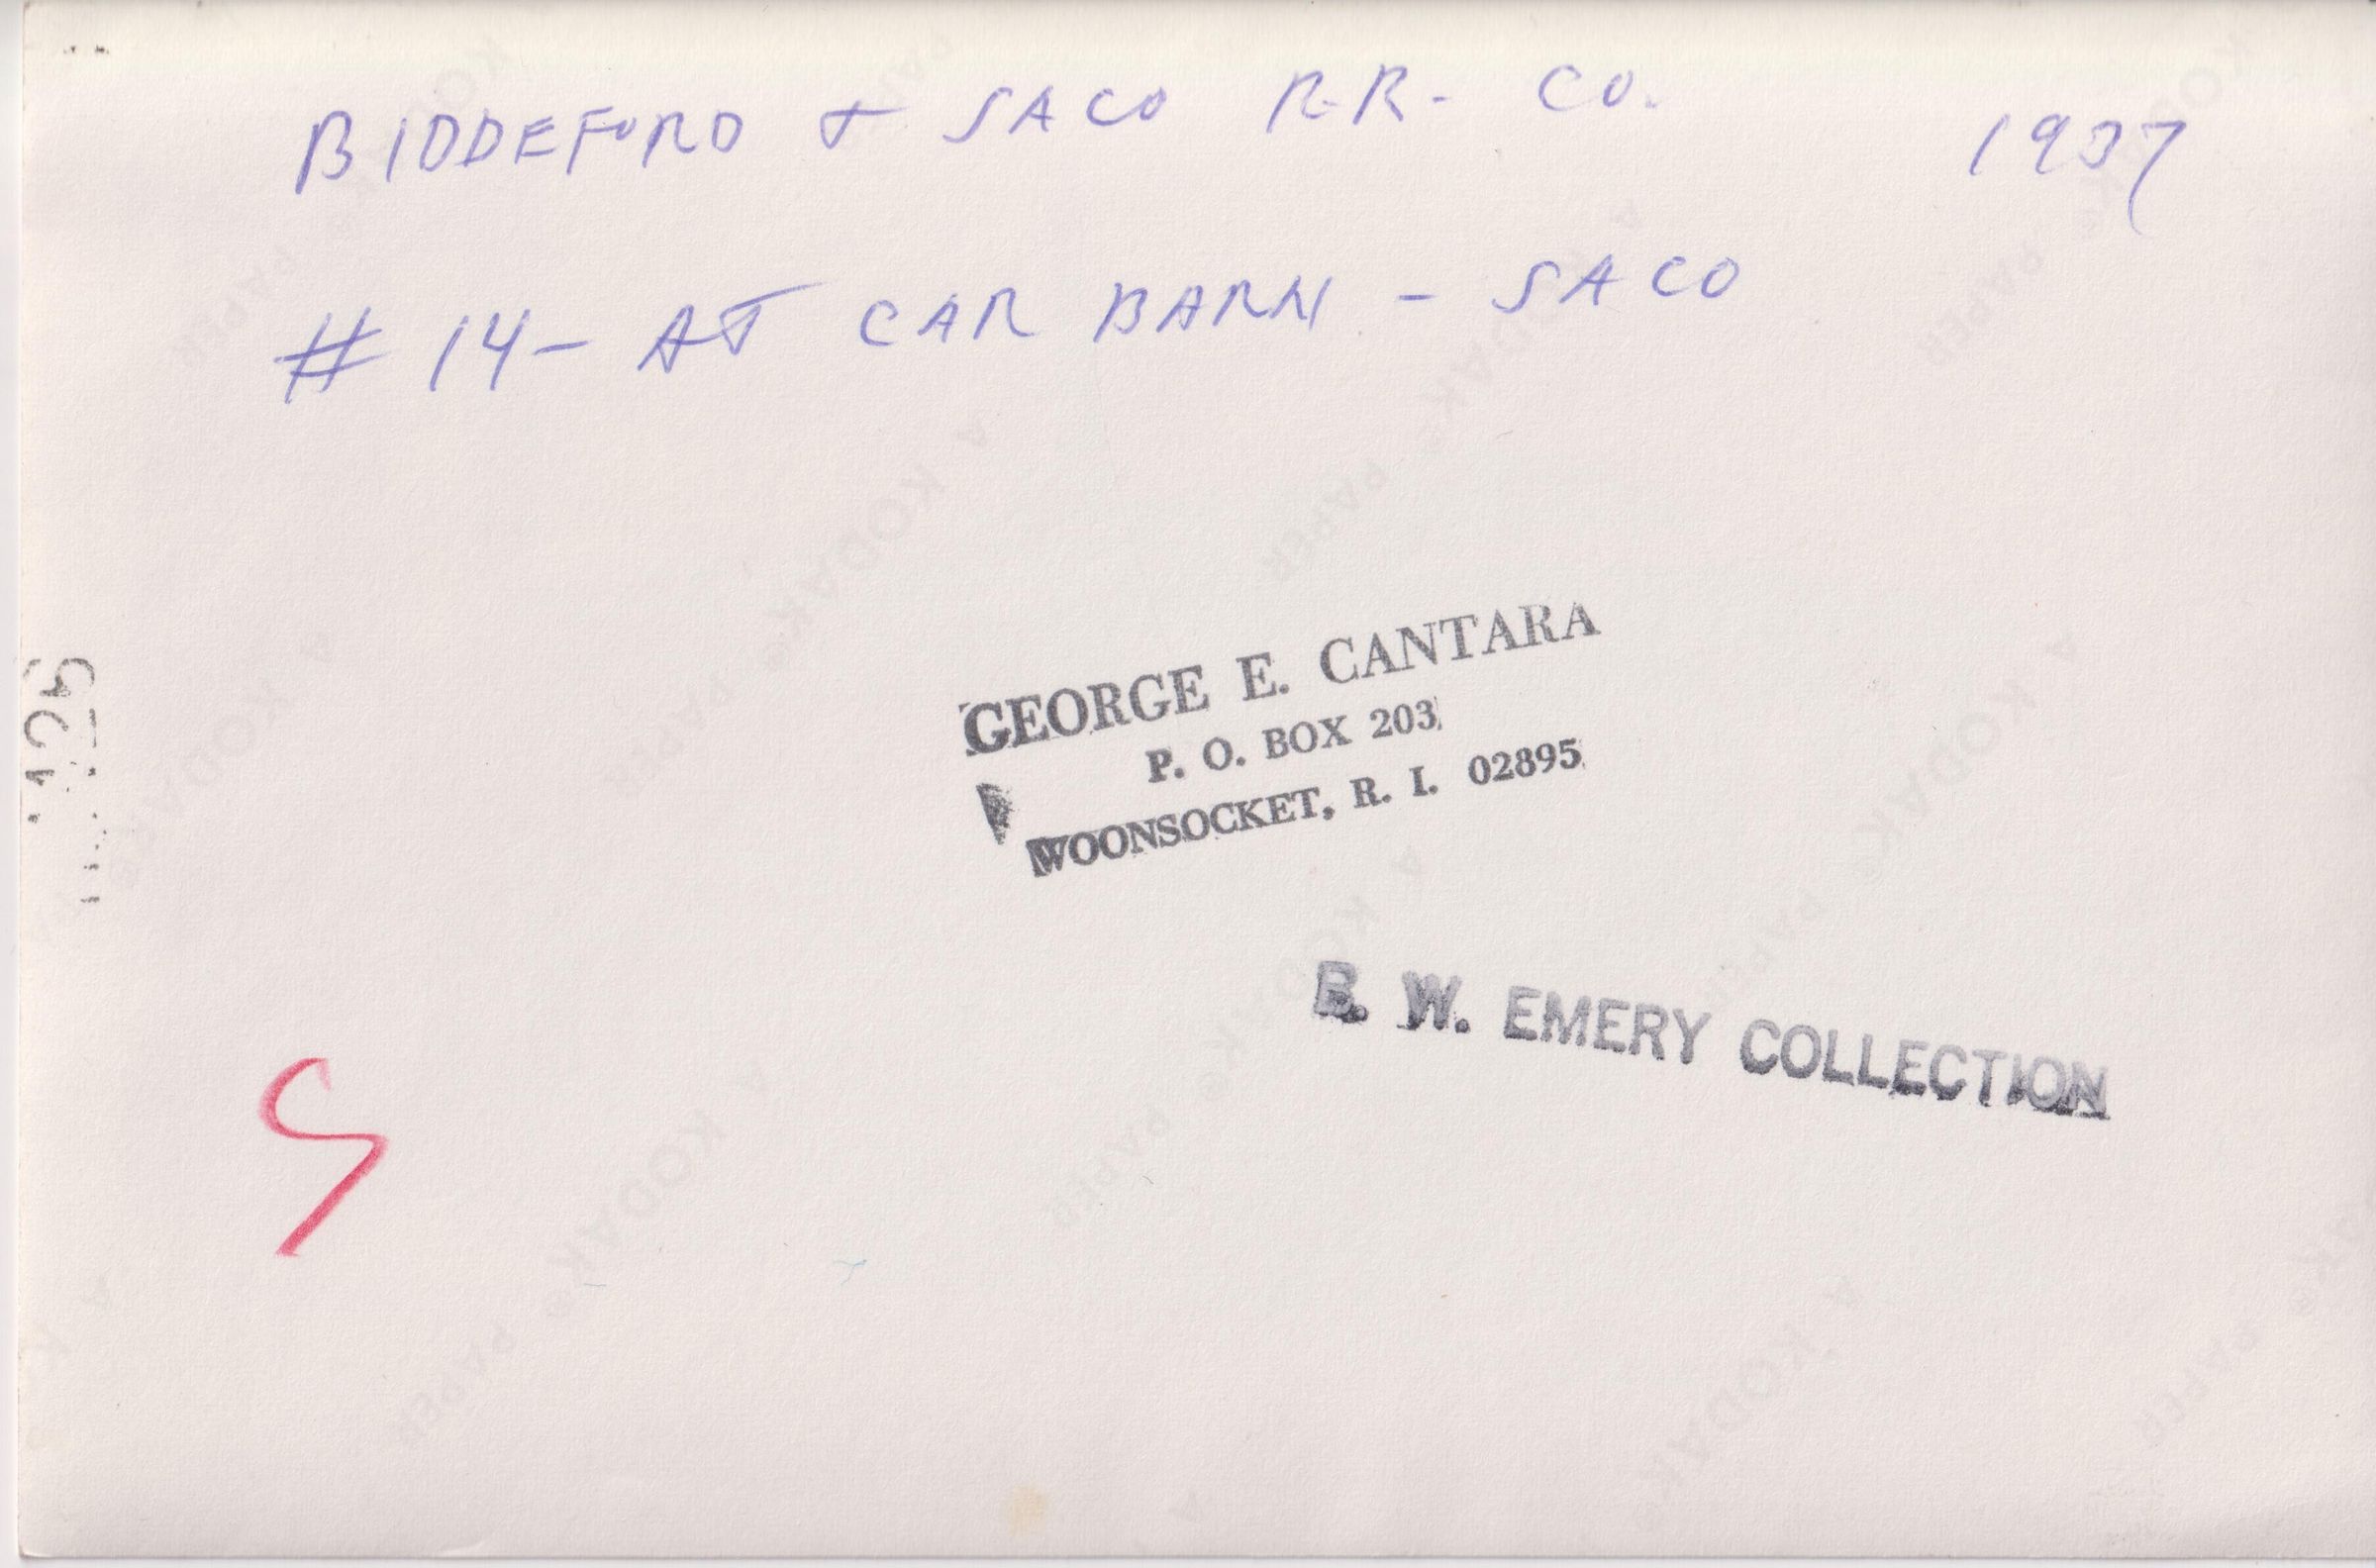 BIDDEFORD & SACO R.R. CO. 1937
# 14 - AT CAR BARN - SACO
GEORGE E. CANTARA
P. O. BOX 203
WOONSOCKET, R. I. 02895
B. W. EMERY COLLECTION
S
A KODAK PAPER